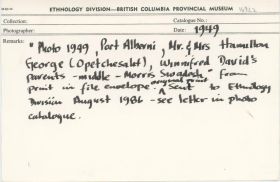 ETHNOLOGY DIVISION—BRITISH COLUMBIA PROVINCIAL MUSEUM
Collection: Catalogue No.:
Photographer: Date: 1949
Remarks:
"Photo 1949, Port Alberni, Mr. & Mrs Hamilton
George (Opetchesaht), Winnifred David's
parents - middle - Morris Swadesh" From
original print
print in file envelope. Sent to Ethnology
Division August 1986 - see letter in photo
catalogue.